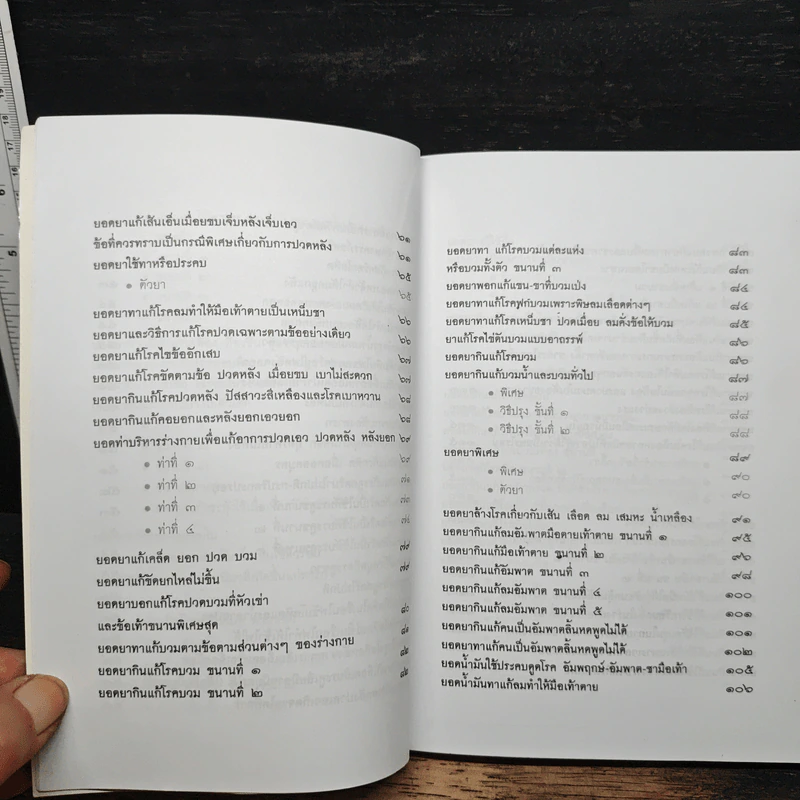 ยอดยาแก้เส้นเอ็นเมื่อยขบเจ็บหลังเจ็บเอว ๖๑
ข้อที่ควรทราบเป็นกรณีพิเศษเกี่ยวกับการปวดหลัง ๖๑
ยอดยาใช้ทาหรือประคบ ๖๕
• ตัวยา ๖๕
ยอดยาทาแก้โรคลมทำให้มือเท้าตายเป็นเหน็บชา ๖๖
ยอดยาและวิธีการแก้โรคปวดเฉพาะตามข้ออย่างเดียว ๖๖
ยอดยาแก้โรคไขข้ออักเสบ ๖๗
ยอดยาแก้โรคขัดตามข้อ ปวดหลัง เมื่อยขบ เบาไม่สะดวก ๖๗
ยอดยากินแก้โรคปวดหลัง ปัสสาวะสีเหลืองและโรคเบาหวาน ๖๘
ยอดยากินแก้คอยอกและหลังยอกเอวยอก ๖๘
ยอดท่าบริหารร่างกายเพื่อแก้อาการปวดเอว ปวดหลัง หลังยอก ๖๙
• ท่าที่ ๑ ๖๙
• ท่าที่ ๒ ๗๑
• ท่าที่ ๓ ๗๓
• ท่าที่ ๔ ๗๔
ยอดยาแก้เคล็ด ยอก ปวด บวม ๗๙
ยอดยาแก้ขัดยกไหล่ไม่ขึ้น ๗๙
ยอดยาบอกแก้โรคปวดบวมที่หัวเข่า
และข้อเท้าขนานพิเศษสุด ๘๐
ยอดยาทาแก้บวมตามข้อตามส่วนต่างๆ ของร่างกาย ๘๑
ยอดยากินแก้โรคบวม ขนานที่ ๑ ๘๒
ยอดยากินแก้โรคบวม ขนานที่ ๒ ๘๒
ยอดยาทา แก้โรคบวมแต่ละแห่ง ๘๓
หรือบวมทั้งตัว ขนานที่ ๓ ๘๓
ยอดยาพอกแก้แขน-ขาที่บวมเป่ง ๘๔
ยอดยาทาแก้โรคฟกบวมเพราะพิษลมเลือดต่างๆ ๘๔
ยอดยาทาแก้โรคเหน็บชา ปวดเมื่อย ลมคั่งข้อให้บวม ๘๕
ยาแก้โรคไข่ดันบวมแบบอาถรรพ์ ๘๖
ยอดยากินแก้โรคบวม ๘๖
ยอดยากินแก้บวมน้ำและบวมทั่วไป ๘๗
• พิเศษ ๘๗
• วิธีปรุง ขั้นที่ ๑ ๘๘
• วิธีปรุง ขั้นที่ ๒ ๘๘
ยอดยาพิเศษ ๘๙
• พิเศษ ๙๐
• ตัวยา ๙๐
ยอดยาล้างโรคเกี่ยวกับเส้น เลือด ลม เสมหะ น้ำเหลือง ๙๑
ยอดยากินแก้ลมอัมพาตมือตายเท้าตาย ขนานที่ ๑ ๙๕
ยอดยากินแก้มือเท้าตาย ขนานที่ ๒ ๙๖
ยอดยากินแก้อัมพาต ขนานที่ ๓ ๙๘
ยอดยากินแก้ลมอัมพาต ขนานที่ ๔ ๑๐๐
ยอดยากินแก้ลมอัมพาต ขนานที่ ๕ ๑๐๑
ยอดยากินแก้คนเป็นอัมพาตลิ้นหดพูดไม่ได้ ๑๐๑
ยอดยาทาแก้คนเป็นอัมพาตลิ้นหดพูดไม่ได้ ๑๐๒
ยอดน้ำมันใช้ประคบดูดโรค อัมพฤกษ์-อัมพาต-ชามือเท้า ๑๐๕
ยอดน้ำมันทาแก้ลมทำให้มือเท้าตาย ๑๐๖